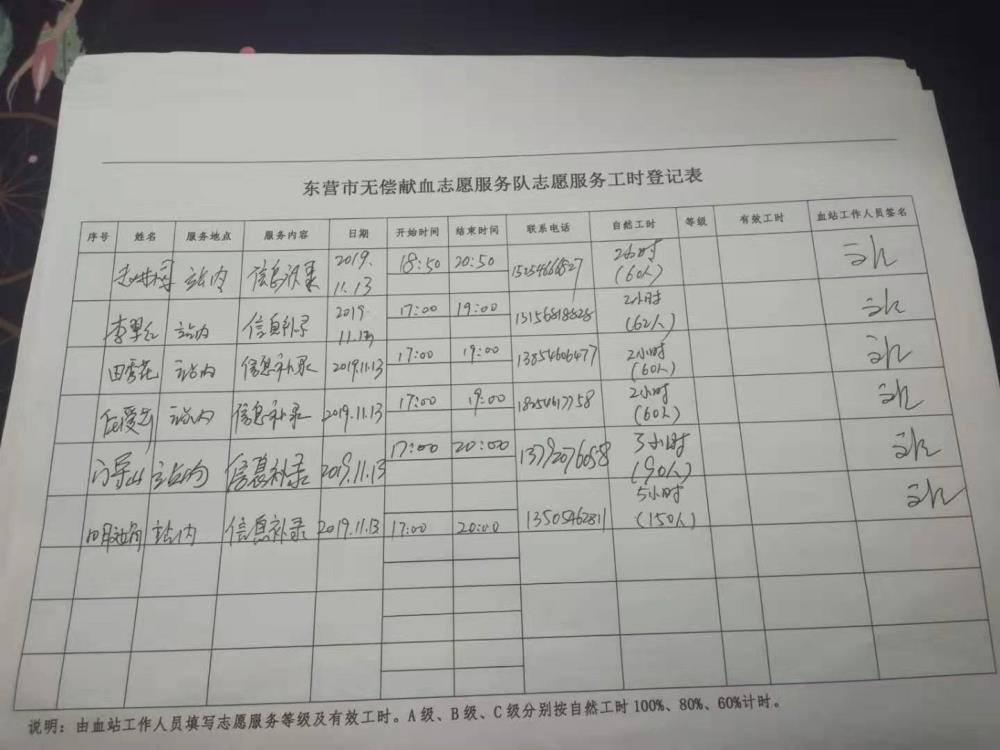 东营市无偿献血志愿服务队志愿服务工时登记表
序号 姓名 服务地点 服务内容 日期 开始时间 结束时间 联系电话 自然工时 等级 有效工时 血站工作人员签名
站内 信息补录 2019.11.13 18:50 20:50 2小时(60人)
李翠红 站内 信息补录 2019.11.13 17:00 19:00 13156818828 2小时(62人)
田秀花 站内 信息补录 2019.11.13 17:00 19:00 13854606477 2小时(60人)
站内 信息补录 2019.11.13 17:00 19:00 2小时(60人)
站内 信息补录 2019.11.13 17:00 20:00 13792076058 3小时(90人)
站内 信息补录 2019.11.13 17:00 20:00 13505462811 5小时(150人)
说明：由血站工作人员填写志愿服务等级及有效工时。A级、B级、C级分别按自然工时100%、80%、60%计时。